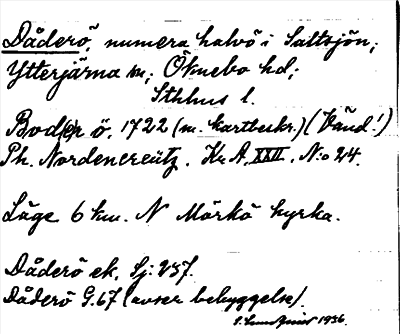 Dåderö, numera halvö i Saltsjön;
Ytterjärna sn; Öknebo hd;
Sthlms l.
Boderö ö. 1722 (m. kartbeskr.) (Vänd!)
Ph. Nordencreutz. Kr. A. XXII. N:o 24.
Läge 6 km. N Mörkö kyrka.
Dåderö ek. Sj: 257.
Dåderö G. 67 (avser bebyggelse).
1936.